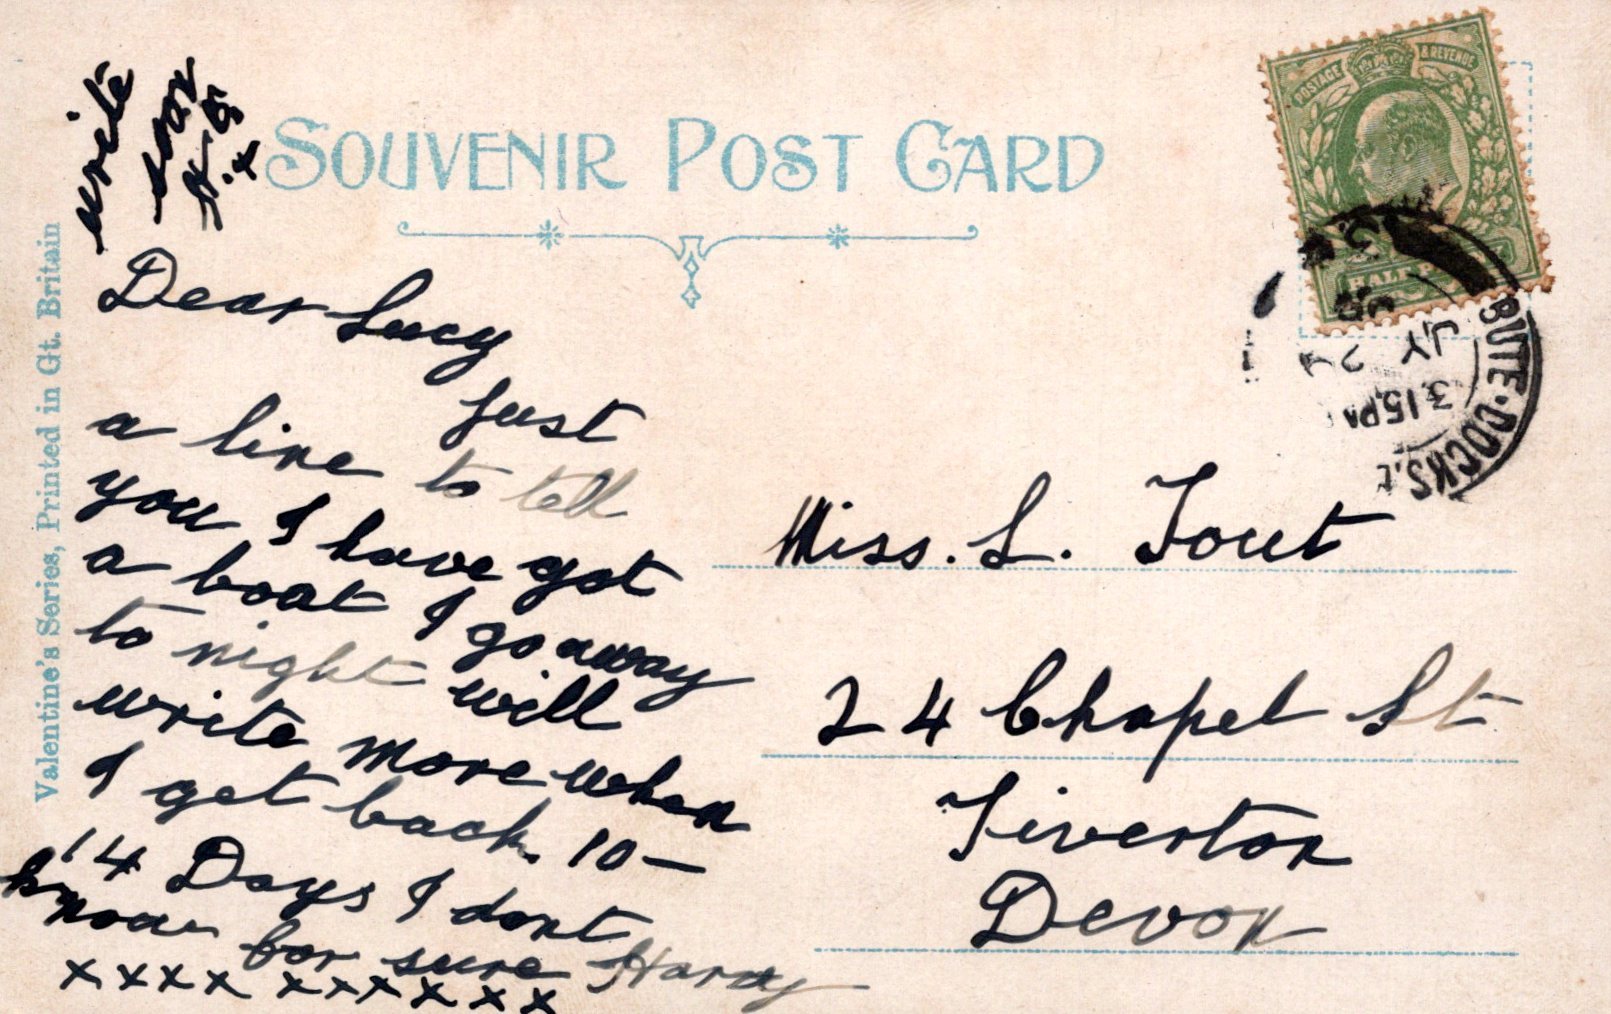 write
soon
SOUVENIR POST CARD
Valentine's Series, Printed in Gt. Britain
Dear Lucy
Just
a line to tell
you I have got
a boat I go away
to night will
write more when
I get back. 10-
14 Days I dont
know for sure Harry
xxxx xxxxxx
Miss. L. Tout
24 Chapel St
Tiverton
Devon
POSTAGE & REVENUE
HALF
BUTE·DOCKS.
3.15PM
JY 24